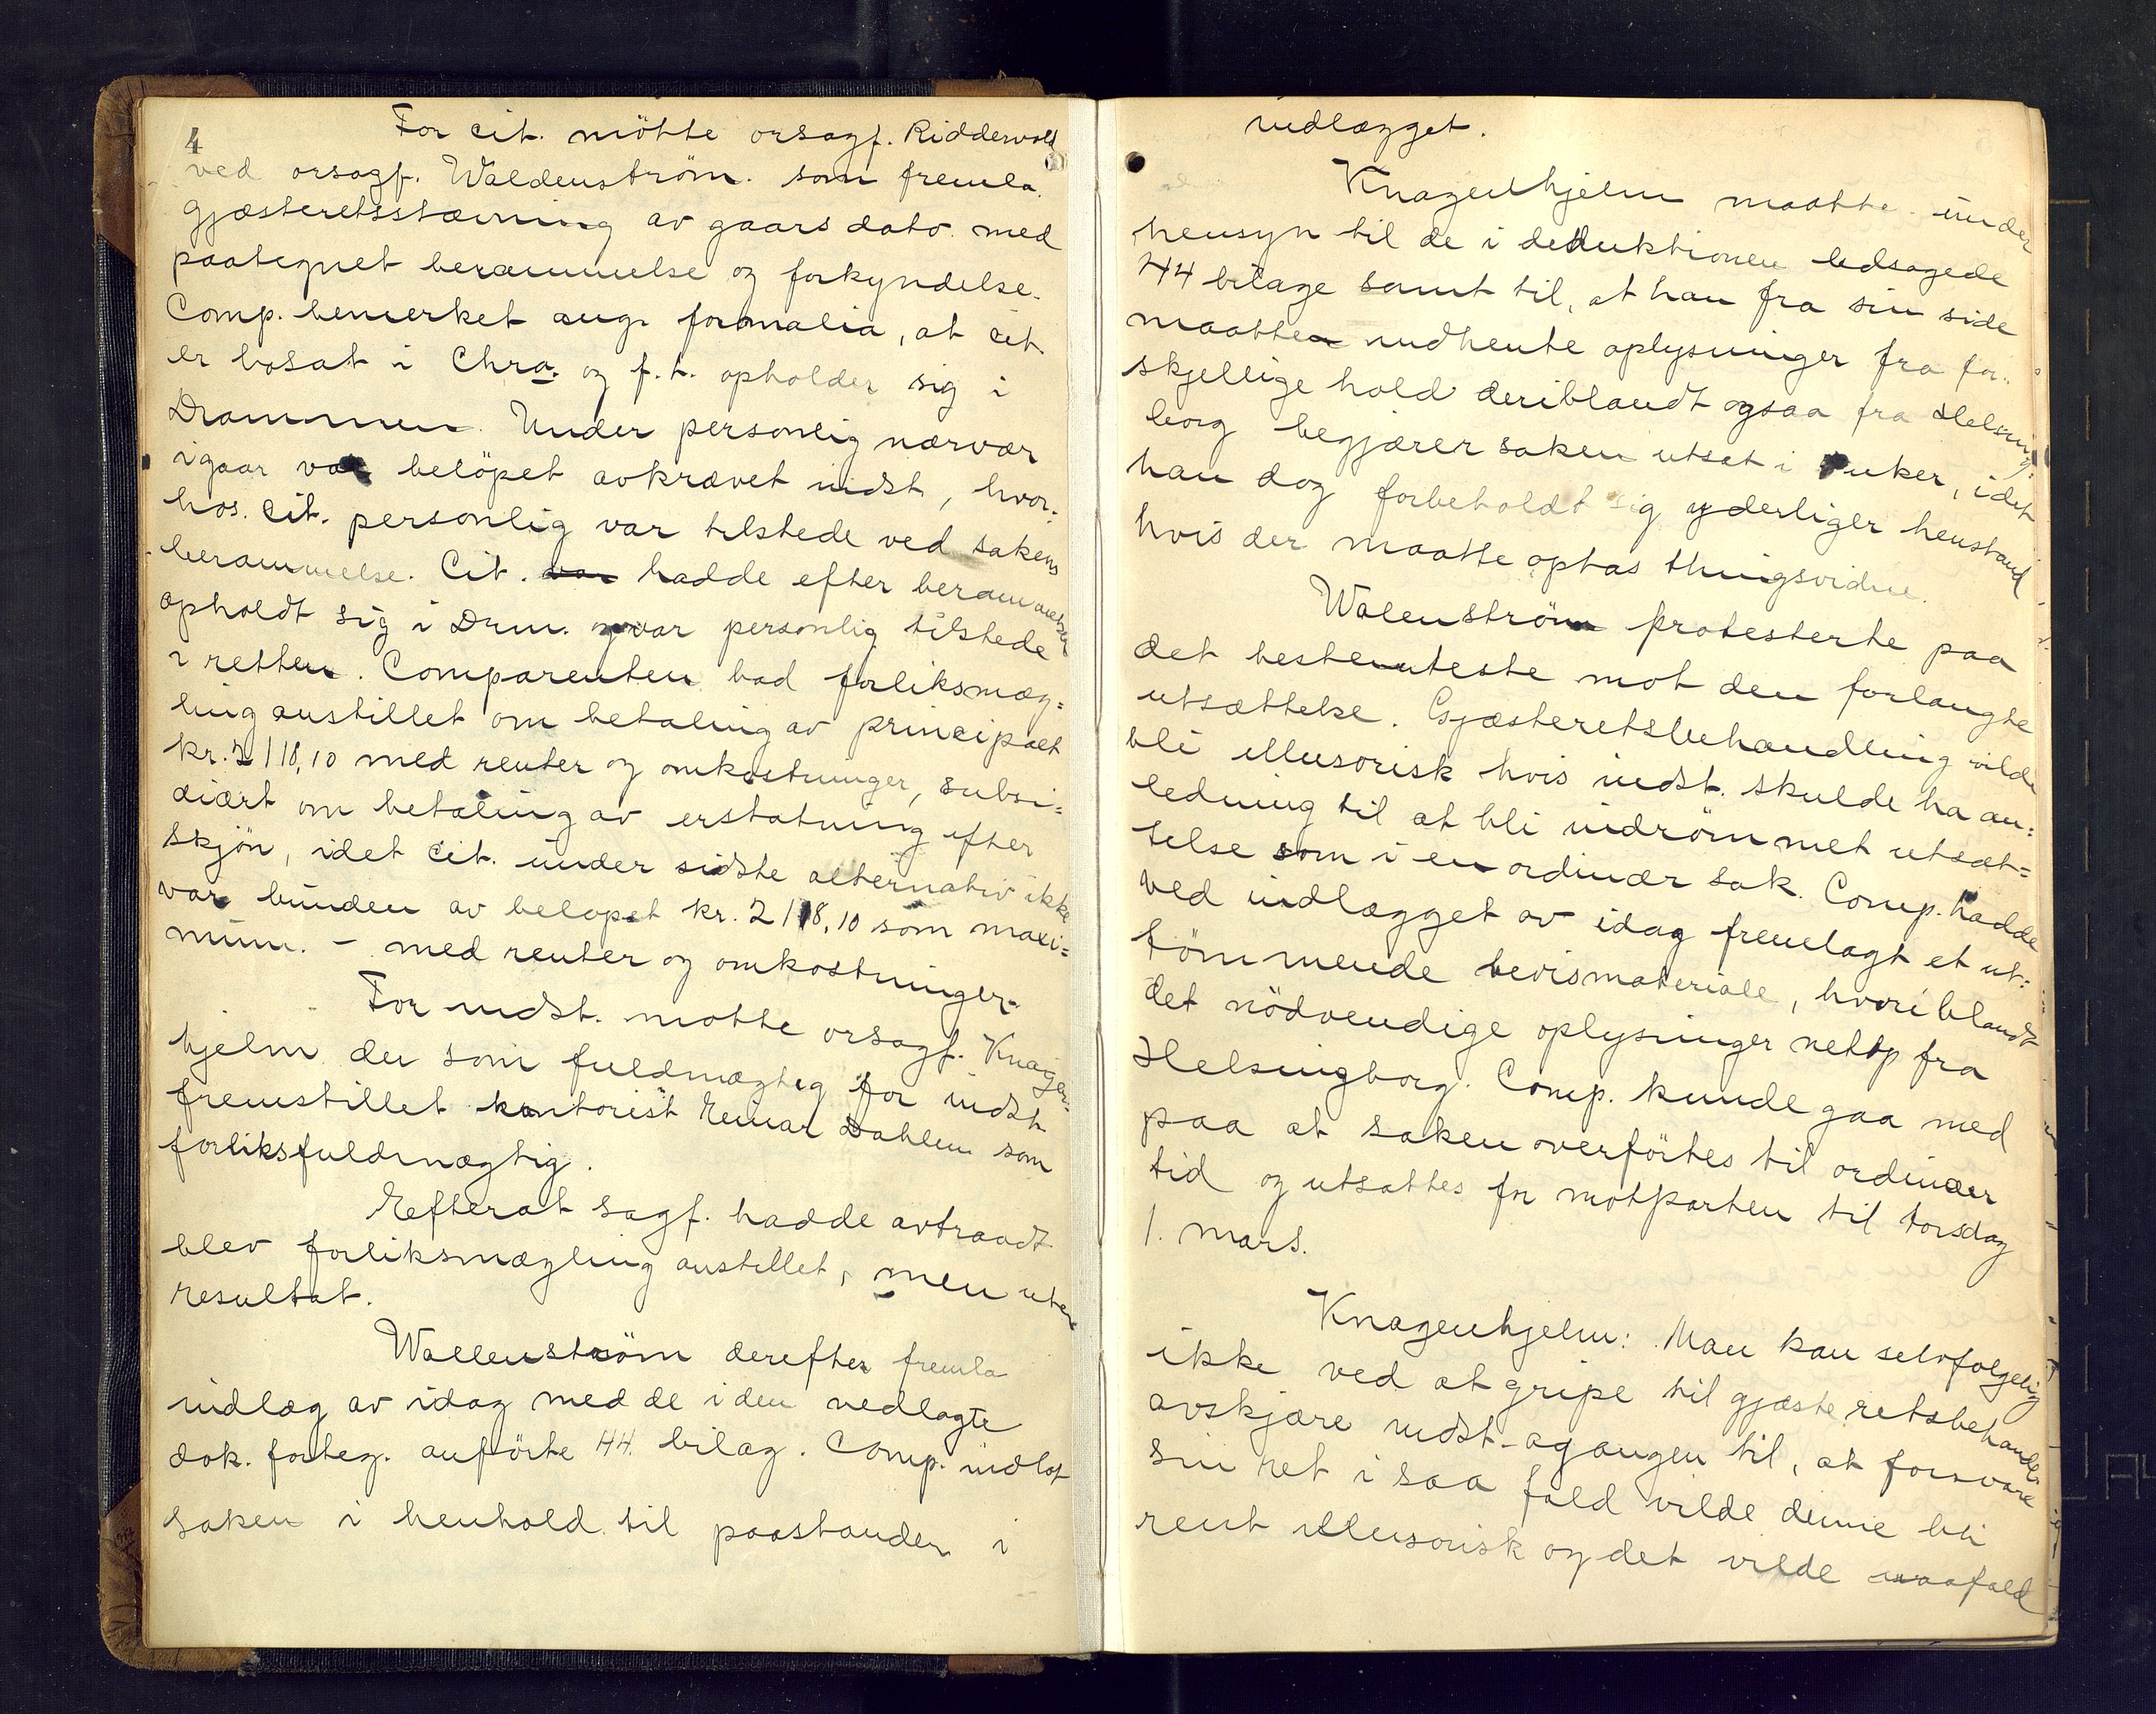 4
For cit. mötte orsagf. Riddervold
ved orsagf. Waldenström. som fremla
gjæsteretsstævning av gaars dato med
paategnet berammelse og forkyndelse.
Comp. bemerket ang. formalia, at cit.
er bosat i Chra. og f.t. opholder sig i
Drammen. Under personlig nærvær
igaar var belöpet avkrævet indst, hvor-
hos. cit. personlig var tilstede ved sakens
berammelse. Cit. var hadde efter berammelsen
opholdt sig i Drm. og var personlig tilstede
i retten. Comparenten bad forliksmæg=
ling anstillet om betaling av principalt
kr. 2118,10 med renter og omkostninger, subsi=
diært om betaling av erstatning efter
skjön, idet cit. under sidste alternativ ikke
var bunden av belöpet kr. 2118,10 som maxi=
mum. - med renter og omkostninger.
For indst. motte orsagf. Knagen-
hjelm der som fuldmægtig for indst.
fremstillet kontorist Einar Dahlen som
forliksfuldmægtig.
Efterat sagf. hadde avtraadt
blev forliksmægling anstillet, men uten
resultat.
Wallenström derefter fremla
indlæg av idag med de i den vedlagte
dok. forteg. anförte 44 bilag. Comp. indlot
saken i henhold til paastanden i
indlægget.
Knagenhjelm maatte under
hensyn til de i deduktionen ledsagede
44 bilage samt til, at han fra sin side
maatte indhente oplysninger fra for-
skjellige hold deriblandt ogsaa fra Helsing-
borg begjærer saken utsat i uker, idet
han dog forbeholdt sig yderliger henstand
hvis der maatte optas thingsvidne.
Walenström protesterte paa
det bestemteste mot den forlangte
utsættelse. Gjæsteretsbehandling vilde
bli illusorisk hvis indst. skulde ha an=
ledning til at bli indrömmet utsæt=
telse som i en ordinær sak. Comp. hadde
ved indlægget av idag fremlagt et ut=
tömmende bevismateriale, hvoriblandt
det nödvendige oplysninger netop fra
Helsingborg. Comp. kunde gaa med
paa at saken overförtes til ordinær
tid og utsattes for motparten til torsdag
1. mars.
Knagenhjelm: Man kan selvfølgelig
ikke ved at gripe til gjæsteretsbehandl.
avskjære indst. agangen til, at forsvare
sin ret i saa fald vilde denne bli
rent illusorisk og det vilde isaafald